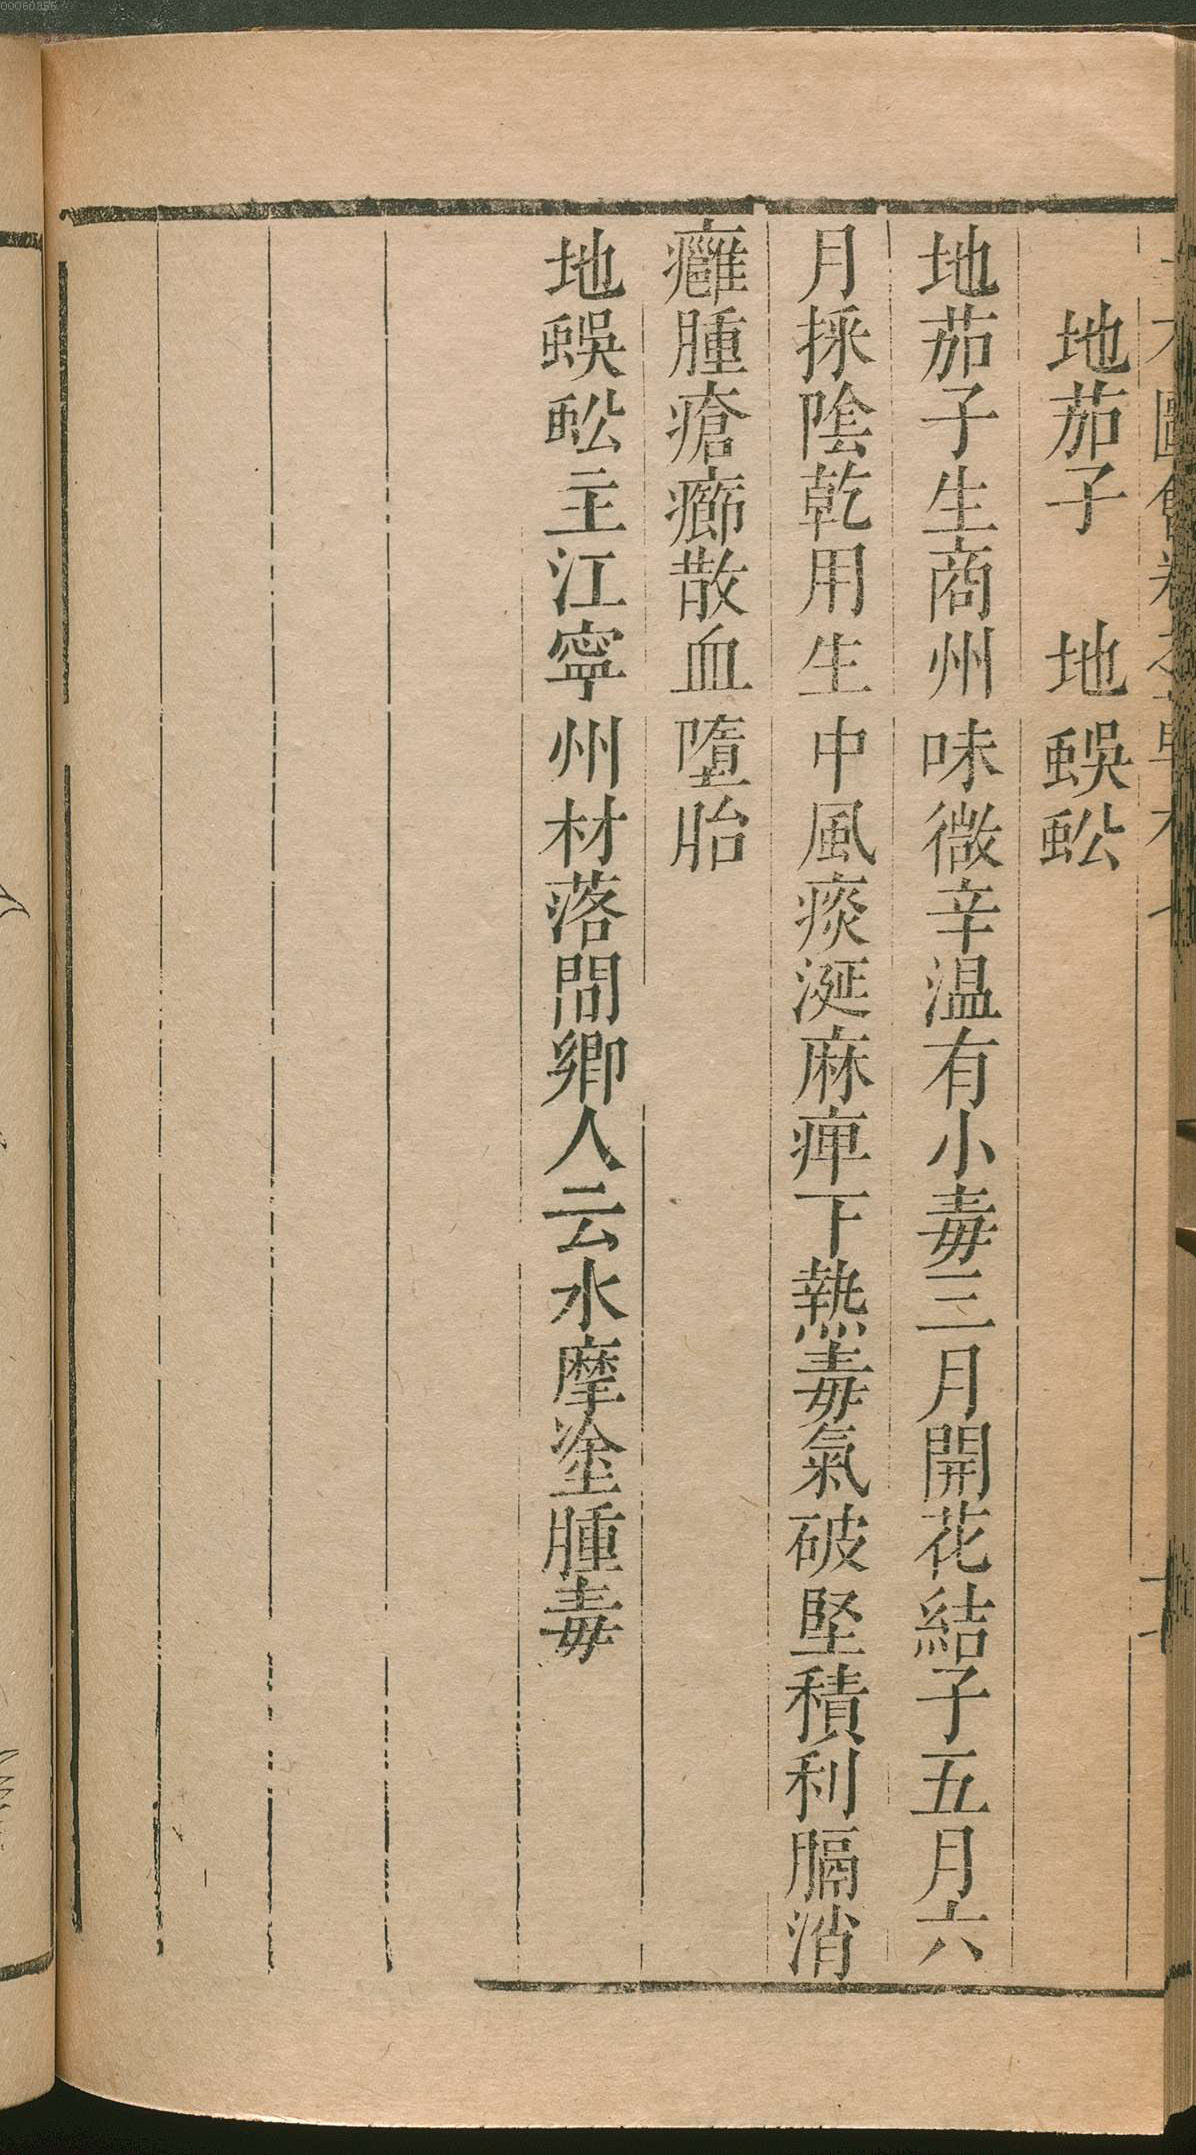 地茄子　地蜈蚣
地茄子生商州味微辛温有小毒三月開花結子五月六
月採陰乾用生中風痰涎麻痺下熱毒氣破堅積利膈消
癰腫瘡癤散血墮胎
地蜈蚣主江寧州材落間鄉人云水摩塗腫毒
00060355